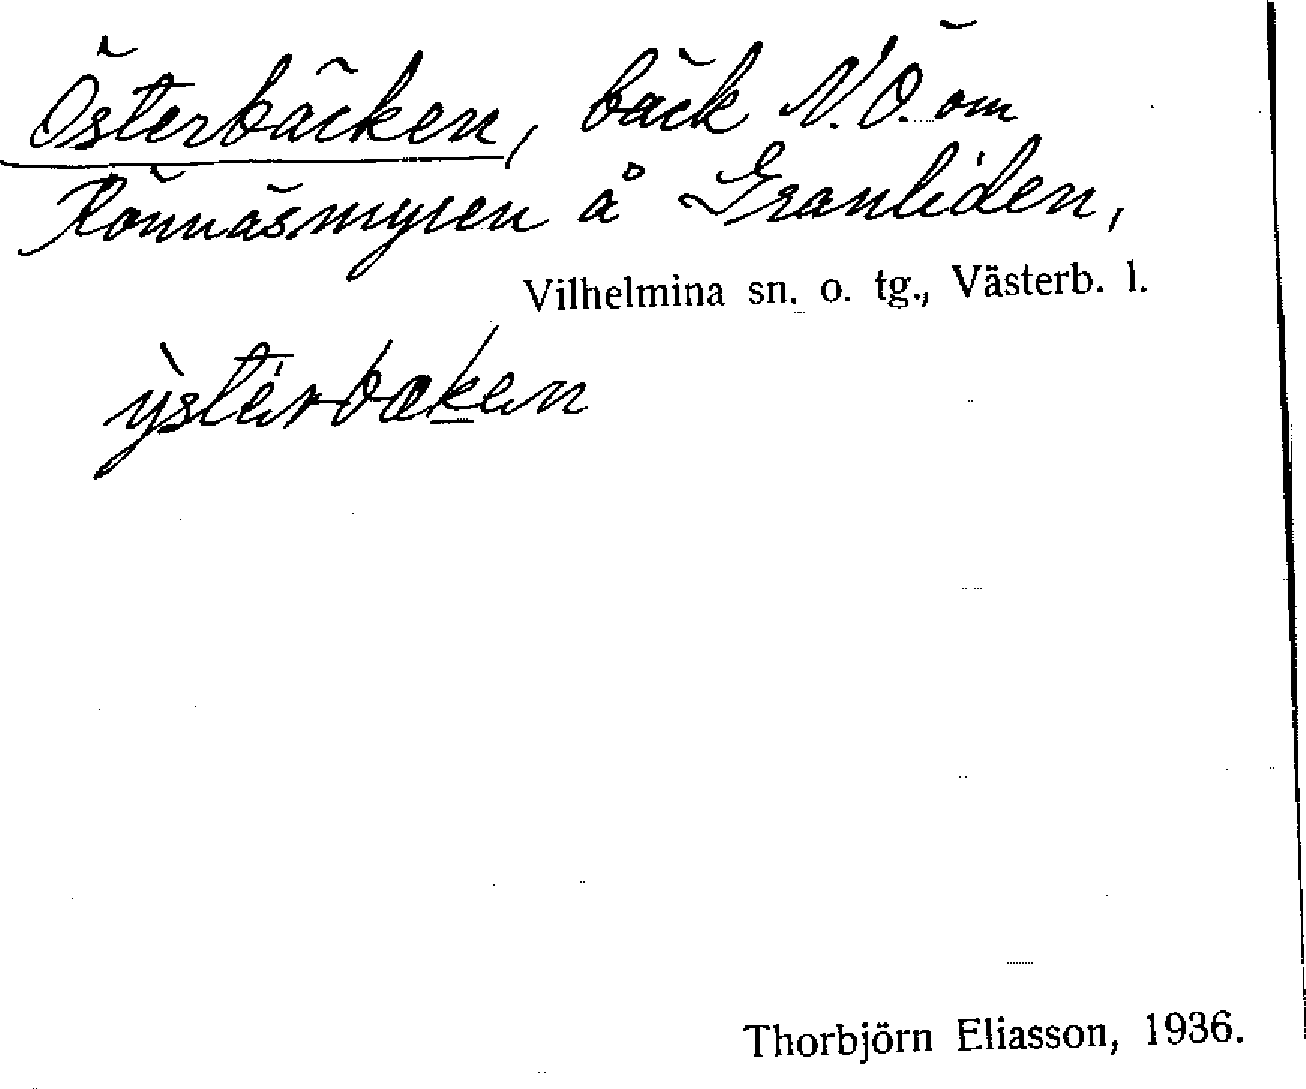 Österbäcken, bäck N.Ö. om
Rönnäsmyren å Granliden,
Vilhelmina sn. o. tg., Västerb. l.
ỳstérbæken
Thorbjörn Eliasson, 1936.